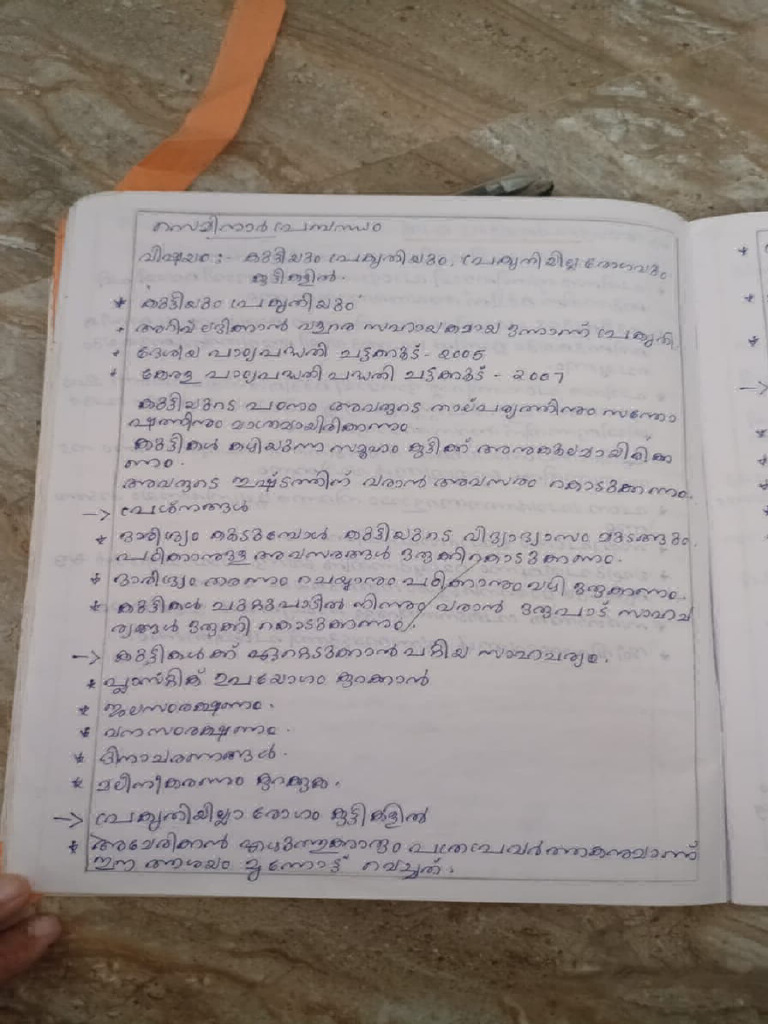 സെമിനാർ പ്രബന്ധം
വിഷയം :- കുട്ടിയും പ്രകൃതിയും, പ്രകൃതിയില്ലാ രോഗവും
കുട്ടികളിൽ.
* കുട്ടിയും പ്രകൃതിയും
* അറിവ് ലഭിക്കാൻ വളരെ സഹായകമായ ഒന്നാണ് പ്രകൃതി
* ദേശീയ പാഠ്യപദ്ധതി ചട്ടക്കൂട് - 2005
* കേരള പാഠ്യപദ്ധതി പദ്ധതി ചട്ടക്കൂട് - 2007
കുട്ടിയുടെ പഠനം അവരുടെ താല്പര്യത്തിനും സന്തോ
ഷത്തിനും മാത്രമായിരിക്കാനം.
കുട്ടികൾ കഴിയുന്ന സമൂഹം കുട്ടിക്ക് അനുകൂലമായിരിക്ക
ണം.
അവരുടെ ഇഷ്ടത്തിന് വരാൻ അവസരം കൊടുക്കണം.
-> പ്രശ്നങ്ങൾ
* ദാരിദ്ര്യം കൂടുമ്പോൾ കുട്ടിയുടെ വിദ്യാഭ്യാസം മുടങ്ങും.
പഠിക്കാനുള്ള അവസരങ്ങൾ ഒരുക്കികൊടുക്കണം.
* ദാരിദ്ര്യം തരണം ചെയ്യാനും പഠിക്കാനും വഴി ഒരുക്കണം.
* കുട്ടികൾ ചുറ്റുപാടിൽ നിന്നും വരാൻ ഒരുപാട് സാഹച
ര്യങ്ങൾ ഒരുക്കി കൊടുക്കണം.
-> കുട്ടികൾക്ക് ഏറ്റെടുക്കാൻ പറ്റിയ സാഹചര്യം.
* പ്ലാസ്റ്റിക് ഉപയോഗം കുറക്കാൻ
* ജലസംരക്ഷണം.
* വനസംരക്ഷണം.
* ദിനാചരണങ്ങൾ.
* മലിനീകരണം കുറക്കുക.
-> പ്രകൃതിയില്ലാ രോഗം കുട്ടികളിൽ
* അമേരിക്കൻ എഴുത്തുക്കാരും പത്രപ്രവർത്തകനുമാണ്
ഈ ആശയം മുന്നോട്ട് വെച്ചത്.